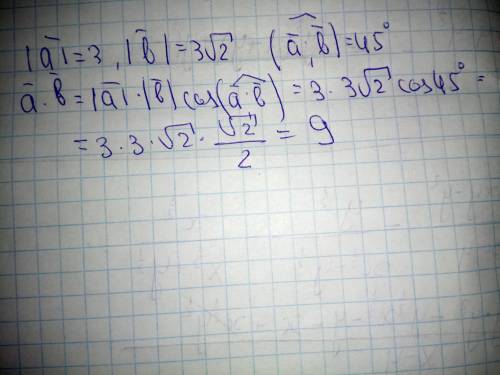 |a̅| = 3 , |b̅| = 3√2   (a̅,^b̅) = 45°
a̅ · b̅ = |a̅| · |b̅| cos(a̅ ·^ b̅) = 3 · 3√2 cos 45° =
= 3 · 3 · √2 · √2/2 = 9